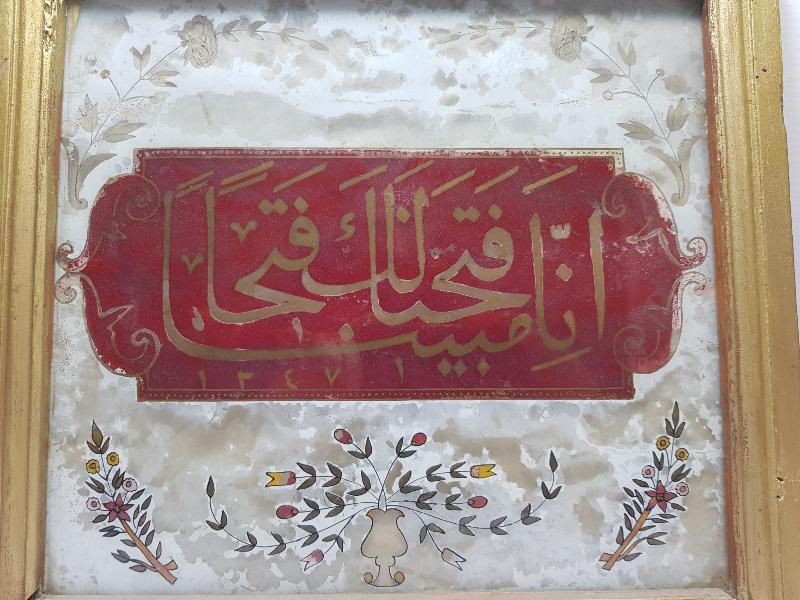 انا فتحنا لك فتحا مبينا
١٣٤٧ ١